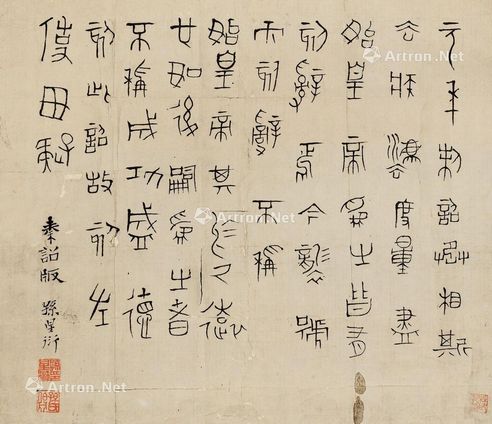 元年制詔丞相斯
去疾灋度量盡
始皇帝為之皆有
刻辭焉今襲號
而刻辭不稱
始皇帝其於久遠
也如後嗣為之者
不稱成功盛德
刻此詔故刻左
使毋疑
秦詔版 孫星衍
Artron.Net
Artron.Net
Artron.Net
Artron.Net